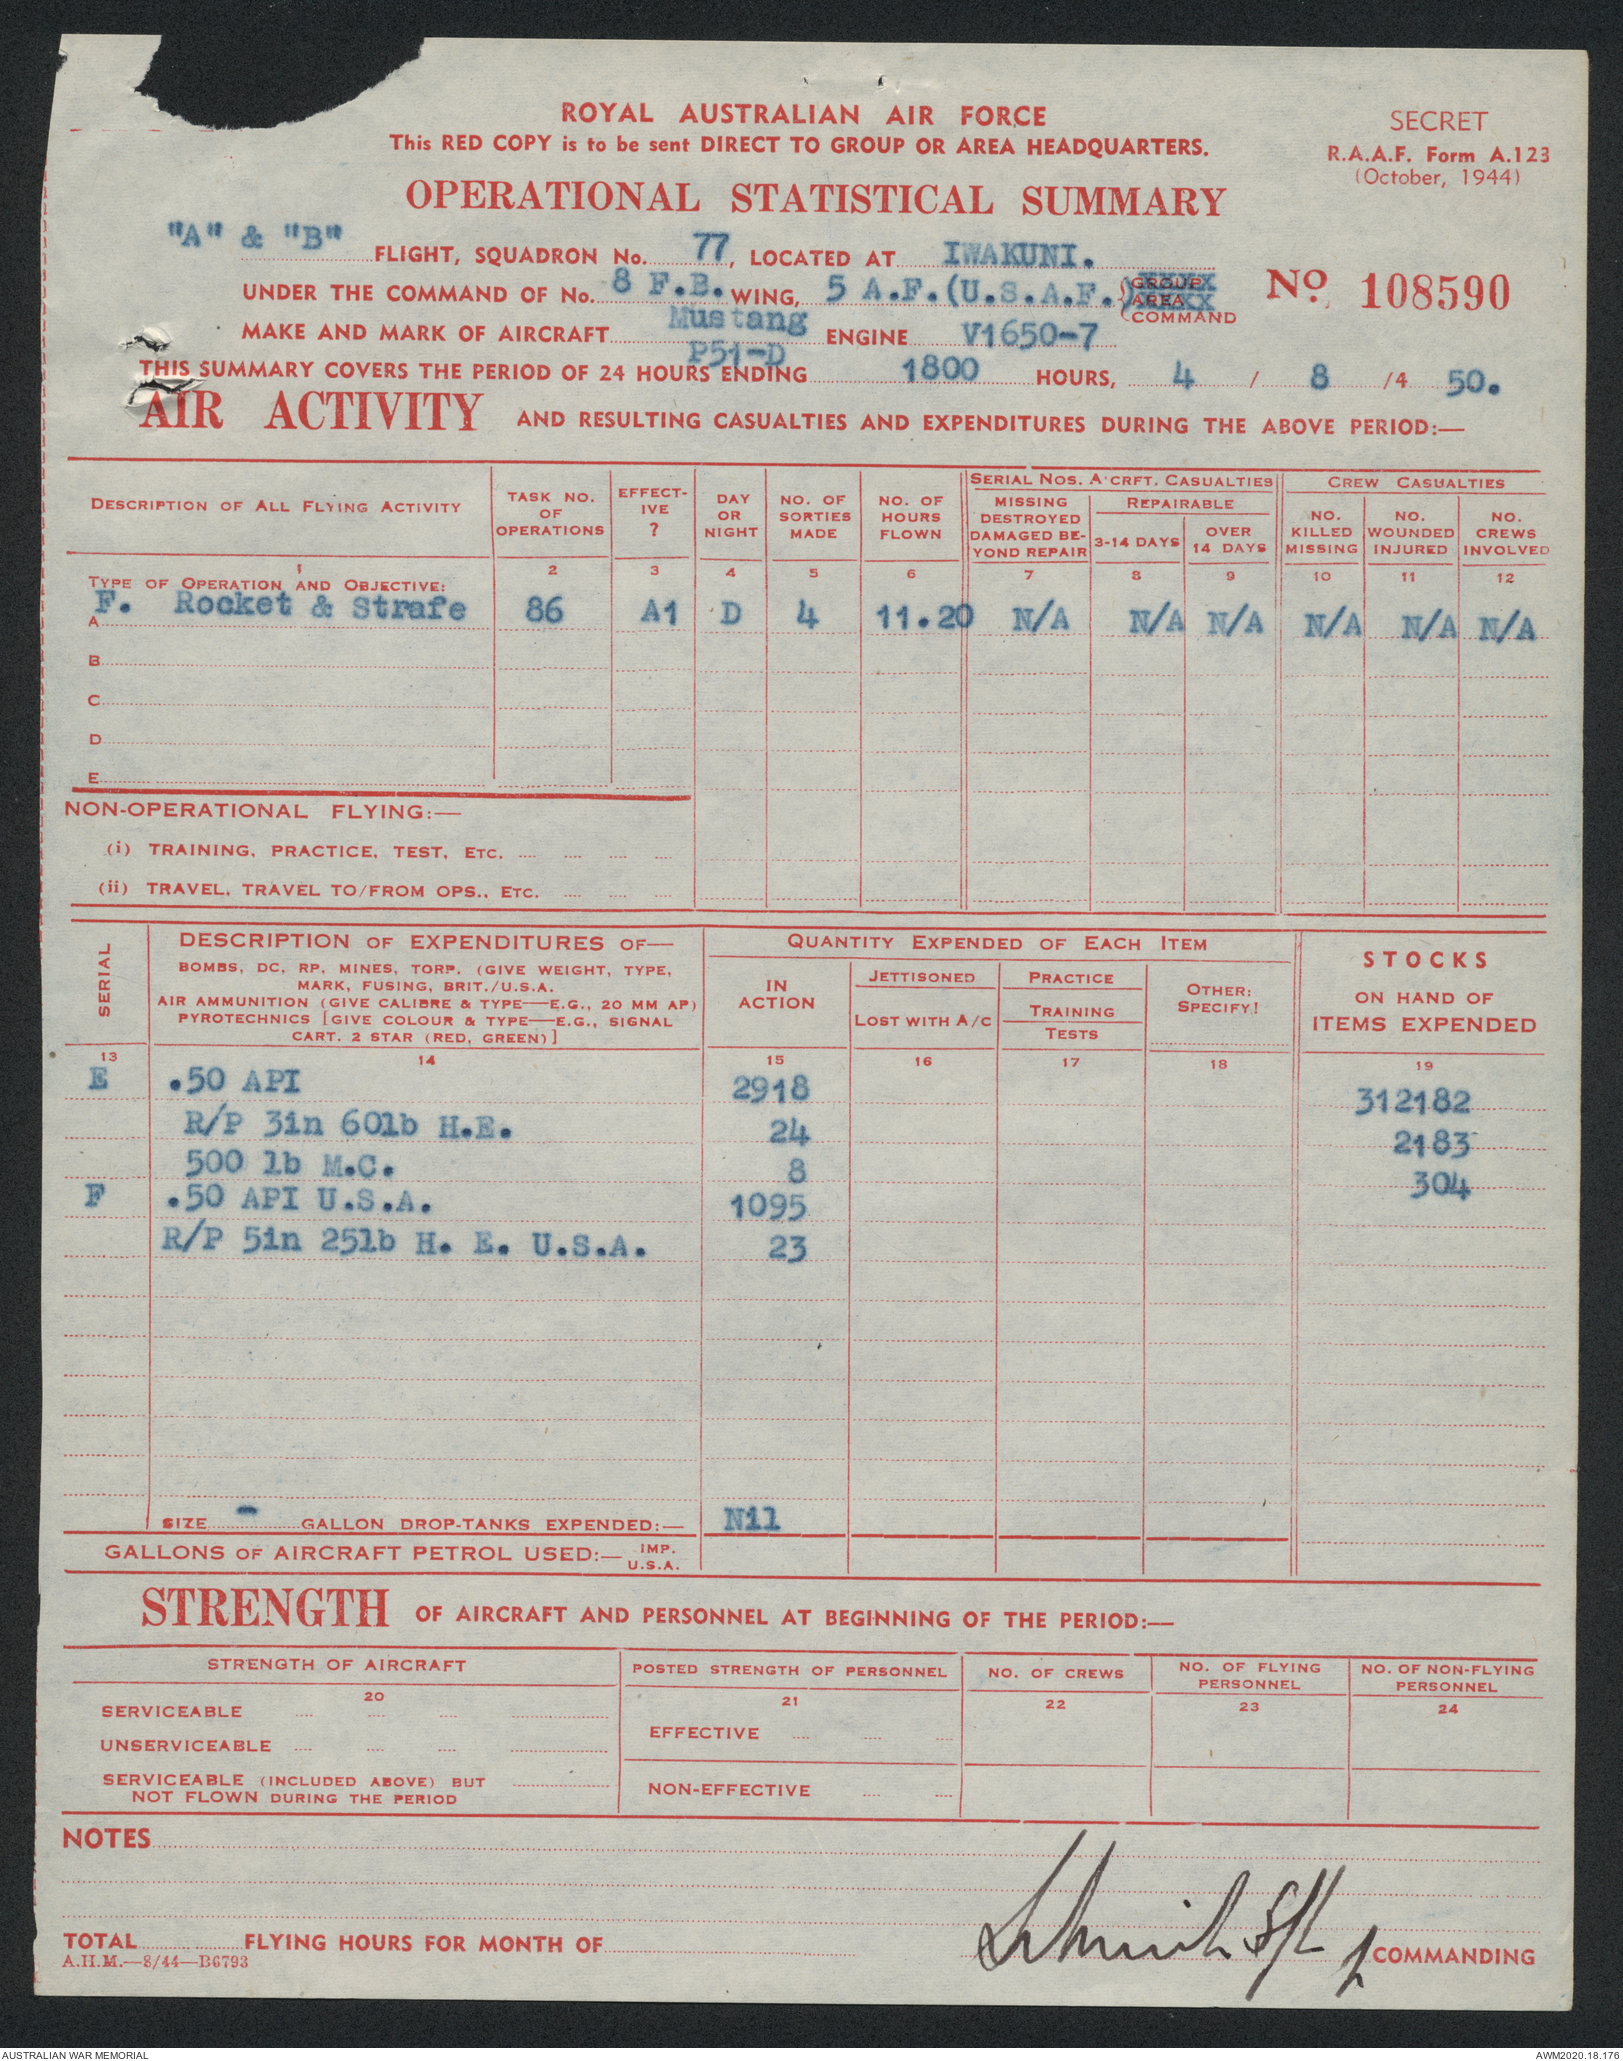 ROYAL AUSTRALIAN AIR FORCE
This RED COPY is to be sent DIRECT TO GROUP OR AREA HEADQUARTERS.
SECRET
R.A.A.F. Form A.123
(October, 1944)
OPERATIONAL STATISTICAL SUMMARY
"A" & "B" FLIGHT, SQUADRON No. 77, LOCATED AT IWAKUNI.
UNDER THE COMMAND OF No. 8 F.B. WING, 5 A.F.(U.S.A.F.) GROUP AREA COMMAND
No. 108590
MAKE AND MARK OF AIRCRAFT Mustang P51-D ENGINE V1650-7
THIS SUMMARY COVERS THE PERIOD OF 24 HOURS ENDING 1800 HOURS, 4 / 8 /4 50.
AIR ACTIVITY AND RESULTING CASUALTIES AND EXPENDITURES DURING THE ABOVE PERIOD:—
DESCRIPTION OF ALL FLYING ACTIVITY
TASK NO. OF OPERATIONS
EFFECT-IVE ?
DAY OR NIGHT
NO. OF SORTIES MADE
NO. OF HOURS FLOWN
SERIAL NOS. A'CRFT. CASUALTIES
MISSING DESTROYED DAMAGED BE-YOND REPAIR
REPAIRABLE
3-14 DAYS
OVER 14 DAYS
CREW CASUALTIES
NO. KILLED MISSING
NO. WOUNDED INJURED
NO. CREWS INVOLVED
1 2 3 4 5 6 7 8 9 10 11 12
TYPE OF OPERATION AND OBJECTIVE:
A F. Rocket & Strafe 86 A1 D 4 11.20 N/A N/A N/A N/A N/A N/A
B
C
D
E
NON-OPERATIONAL FLYING:—
(i) TRAINING, PRACTICE, TEST, ETC.
(ii) TRAVEL, TRAVEL TO/FROM OPS., ETC.
SERIAL
DESCRIPTION OF EXPENDITURES OF—
BOMBS, DC, RP, MINES, TORP, (GIVE WEIGHT, TYPE,
MARK, FUSING, BRIT./U.S.A.
AIR AMMUNITION (GIVE CALIBRE & TYPE—E.G., 20 MM AP)
PYROTECHNICS [GIVE COLOUR & TYPE—E.G., SIGNAL
CART. 2 STAR (RED, GREEN)]
QUANTITY EXPENDED OF EACH ITEM
IN ACTION
JETTISONED
LOST WITH A/C
PRACTICE
TRAINING
TESTS
OTHER:
SPECIFY!
STOCKS
ON HAND OF
ITEMS EXPENDED
13 14 15 16 17 18 19
E .50 API 2918 312182
R/P 3in 60lb H.E. 24 2183
500 lb M.C. 8 304
F .50 API U.S.A. 1095
R/P 5in 25lb H. E. U.S.A. 23
SIZE - GALLON DROP-TANKS EXPENDED:— Nil
GALLONS OF AIRCRAFT PETROL USED:— IMP. U.S.A.
STRENGTH OF AIRCRAFT AND PERSONNEL AT BEGINNING OF THE PERIOD:—
STRENGTH OF AIRCRAFT
POSTED STRENGTH OF PERSONNEL
NO. OF CREWS
NO. OF FLYING PERSONNEL
NO. OF NON-FLYING PERSONNEL
20 21 22 23 24
SERVICEABLE
UNSERVICEABLE
SERVICEABLE (INCLUDED ABOVE) BUT
NOT FLOWN DURING THE PERIOD
EFFECTIVE
NON-EFFECTIVE
NOTES
TOTAL FLYING HOURS FOR MONTH OF
COMMANDING
A.H.M.—8/44—B6793
AUSTRALIAN WAR MEMORIAL
AWM2020.18.176